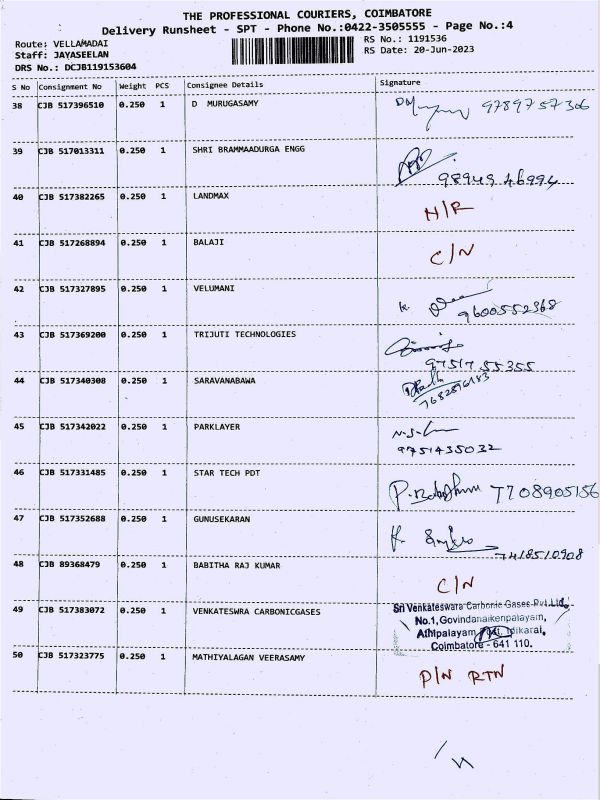 THE PROFESSIONAL COURIERS, COIMBATORE
Delivery Runsheet - SPT - Phone No.:0422-3505555 - Page No.:4
Route: VELLAMADAI
RS No.: 1191536
Staff: JAYASEELAN
RS Date: 20-Jun-2023
DRS No.: DCJB119153604
S No Consignment No Weight PCS Consignee Details Signature
38 CJB 517396510 0.250 1 D MURUGASAMY 9789757306
39 CJB 517013311 0.250 1 SHRI BRAMMAADURGA ENGG 98949 46994
40 CJB 517382265 0.250 1 LANDMAX H/R
41 CJB 517268894 0.250 1 BALAJI C/N
42 CJB 517327895 0.250 1 VELUMANI 9600552368
43 CJB 517369200 0.250 1 TRIJUTI TECHNOLOGIES 97517 55355
44 CJB 517340308 0.250 1 SARAVANABAWA
45 CJB 517342022 0.250 1 PARKLAYER 9751435032
46 CJB 517331485 0.250 1 STAR TECH PDT 7708905156
47 CJB 517352688 0.250 1 GUNUSEKARAN 7418510908
48 CJB 89368479 0.250 1 BABITHA RAJ KUMAR C/N
49 CJB 517383072 0.250 1 VENKATESWRA CARBONICGASES
Sri Venkateswara Carbonic Gases Pvt Ltd.
No.1, Govindanaikenpalayam,
Athipalayam Post, Idikarai,
Coimbatore - 641 110.
50 CJB 517323775 0.250 1 MATHIYALAGAN VEERASAMY P/N RTN